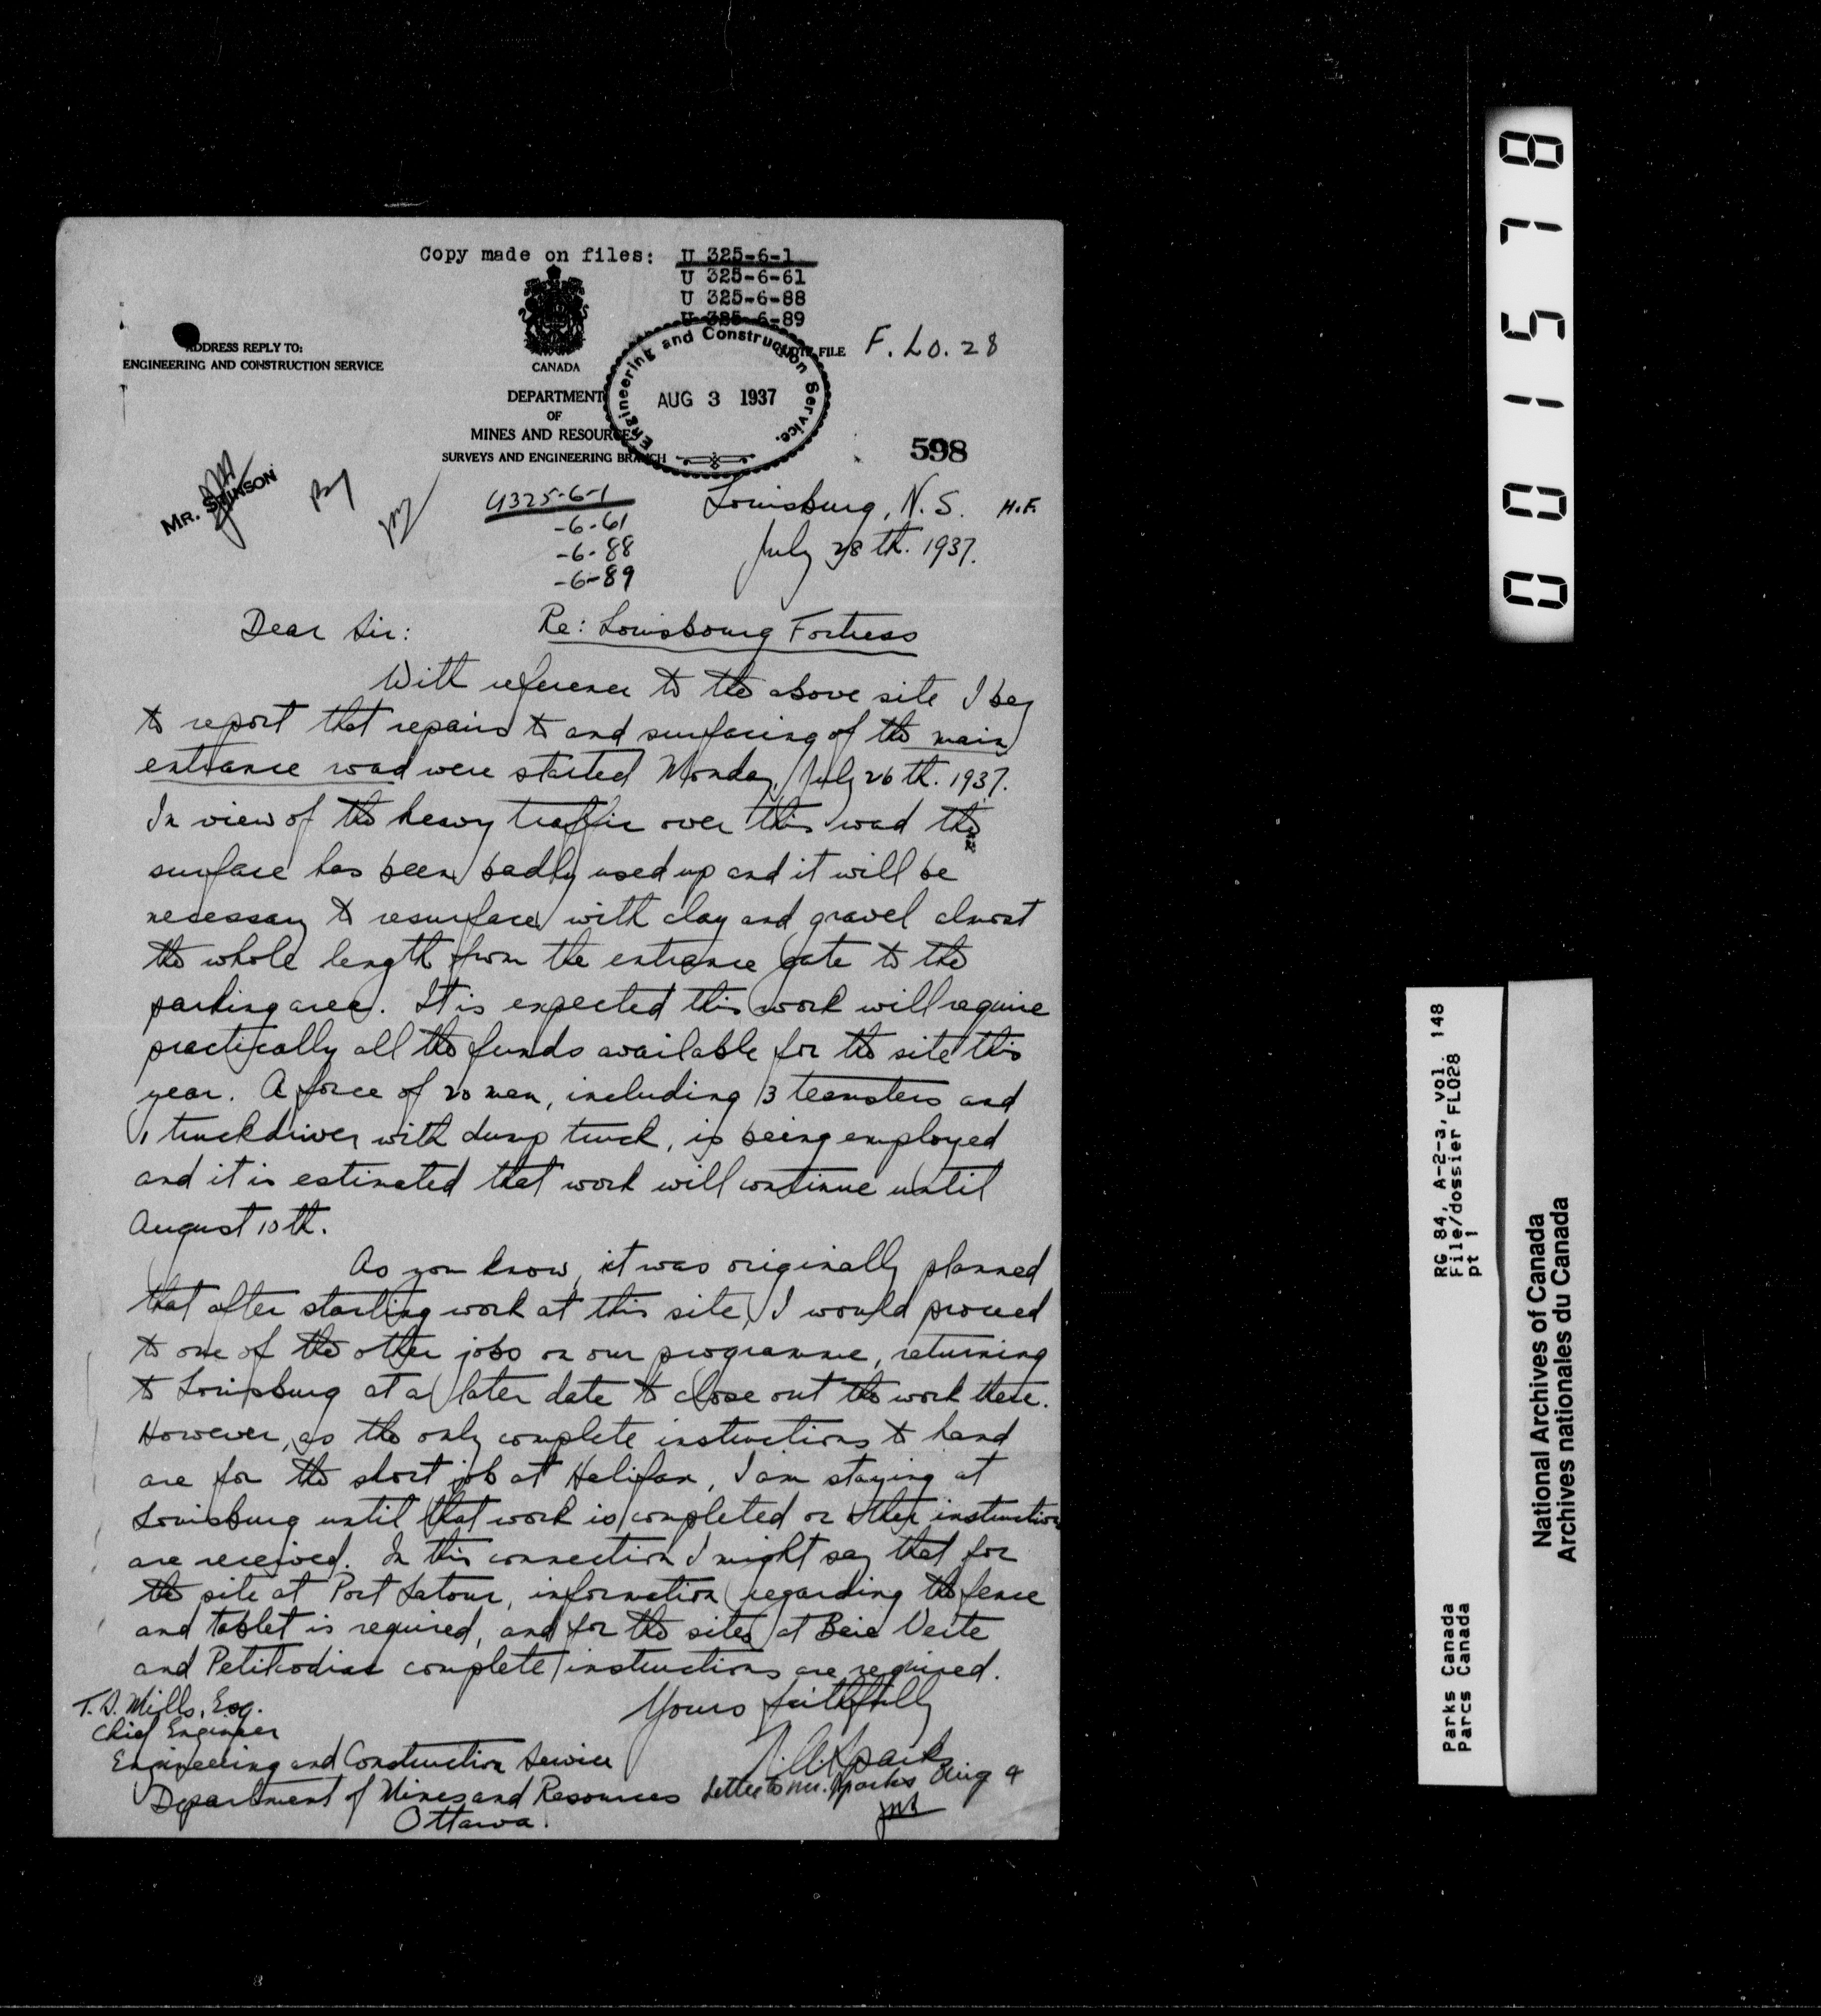 Copy made on files: U 325-6-1
U 325-6-61
U 325-6-88
U 325-6-89
ADDRESS REPLY TO:
ENGINEERING AND CONSTRUCTION SERVICE
CANADA
DEPARTMENT
OF
MINES AND RESOURCES
SURVEYS AND ENGINEERING BRANCH
Engineering and Construction Service.
AUG 3 1937
FILE F. LO. 28
598
MR. STINSON
U325-6-1
-6-61
-6-88
-6-89
Louisburg, N.S. H.F.
July 28th. 1937.
Dear Sir: Re: Louisbourg Fortress
With reference to the above site I beg
to report that repairs to and surfacing of the main
entrance road were started Monday, July 26th. 1937.
In view of the heavy traffic over this road the
surface has been badly used up and it will be
necessary to resurface with clay and gravel almost
the whole length from the entrance gate to the
parking area. It is expected this work will require
practically all the funds available for the site this
year. A force of 20 men, including 13 teamsters and
1 truckdriver with dump truck, is being employed
and it is estimated that work will continue until
August 10th.
As you know, it was originally planned
that after starting work at this site, I would proceed
to one of the other jobs on our programme, returning
to Louisburg at a later date to close out the work there.
However, as the only complete instructions to hand
are for the short job at Halifax, I am staying at
Louisburg until that work is completed or other instructions
are received. In this connection I might say that for
the site at Port Latour, information regarding the fence
and tablet is required, and for the sites at Baie Verte
and Petikodiac complete instructions are required.
Yours faithfully
T.S. Mills, Esq.
Chief Engineer
Engineering and Construction Service
Department of Mines and Resources
Ottawa.
Sparks
Letter to Mr. Sparks Aug 4
00 15 78
RG 84, A-2-a, vol. 148
File/dossier FLO28
pt 1
Parks Canada
Parcs Canada
National Archives of Canada
Archives nationales du Canada